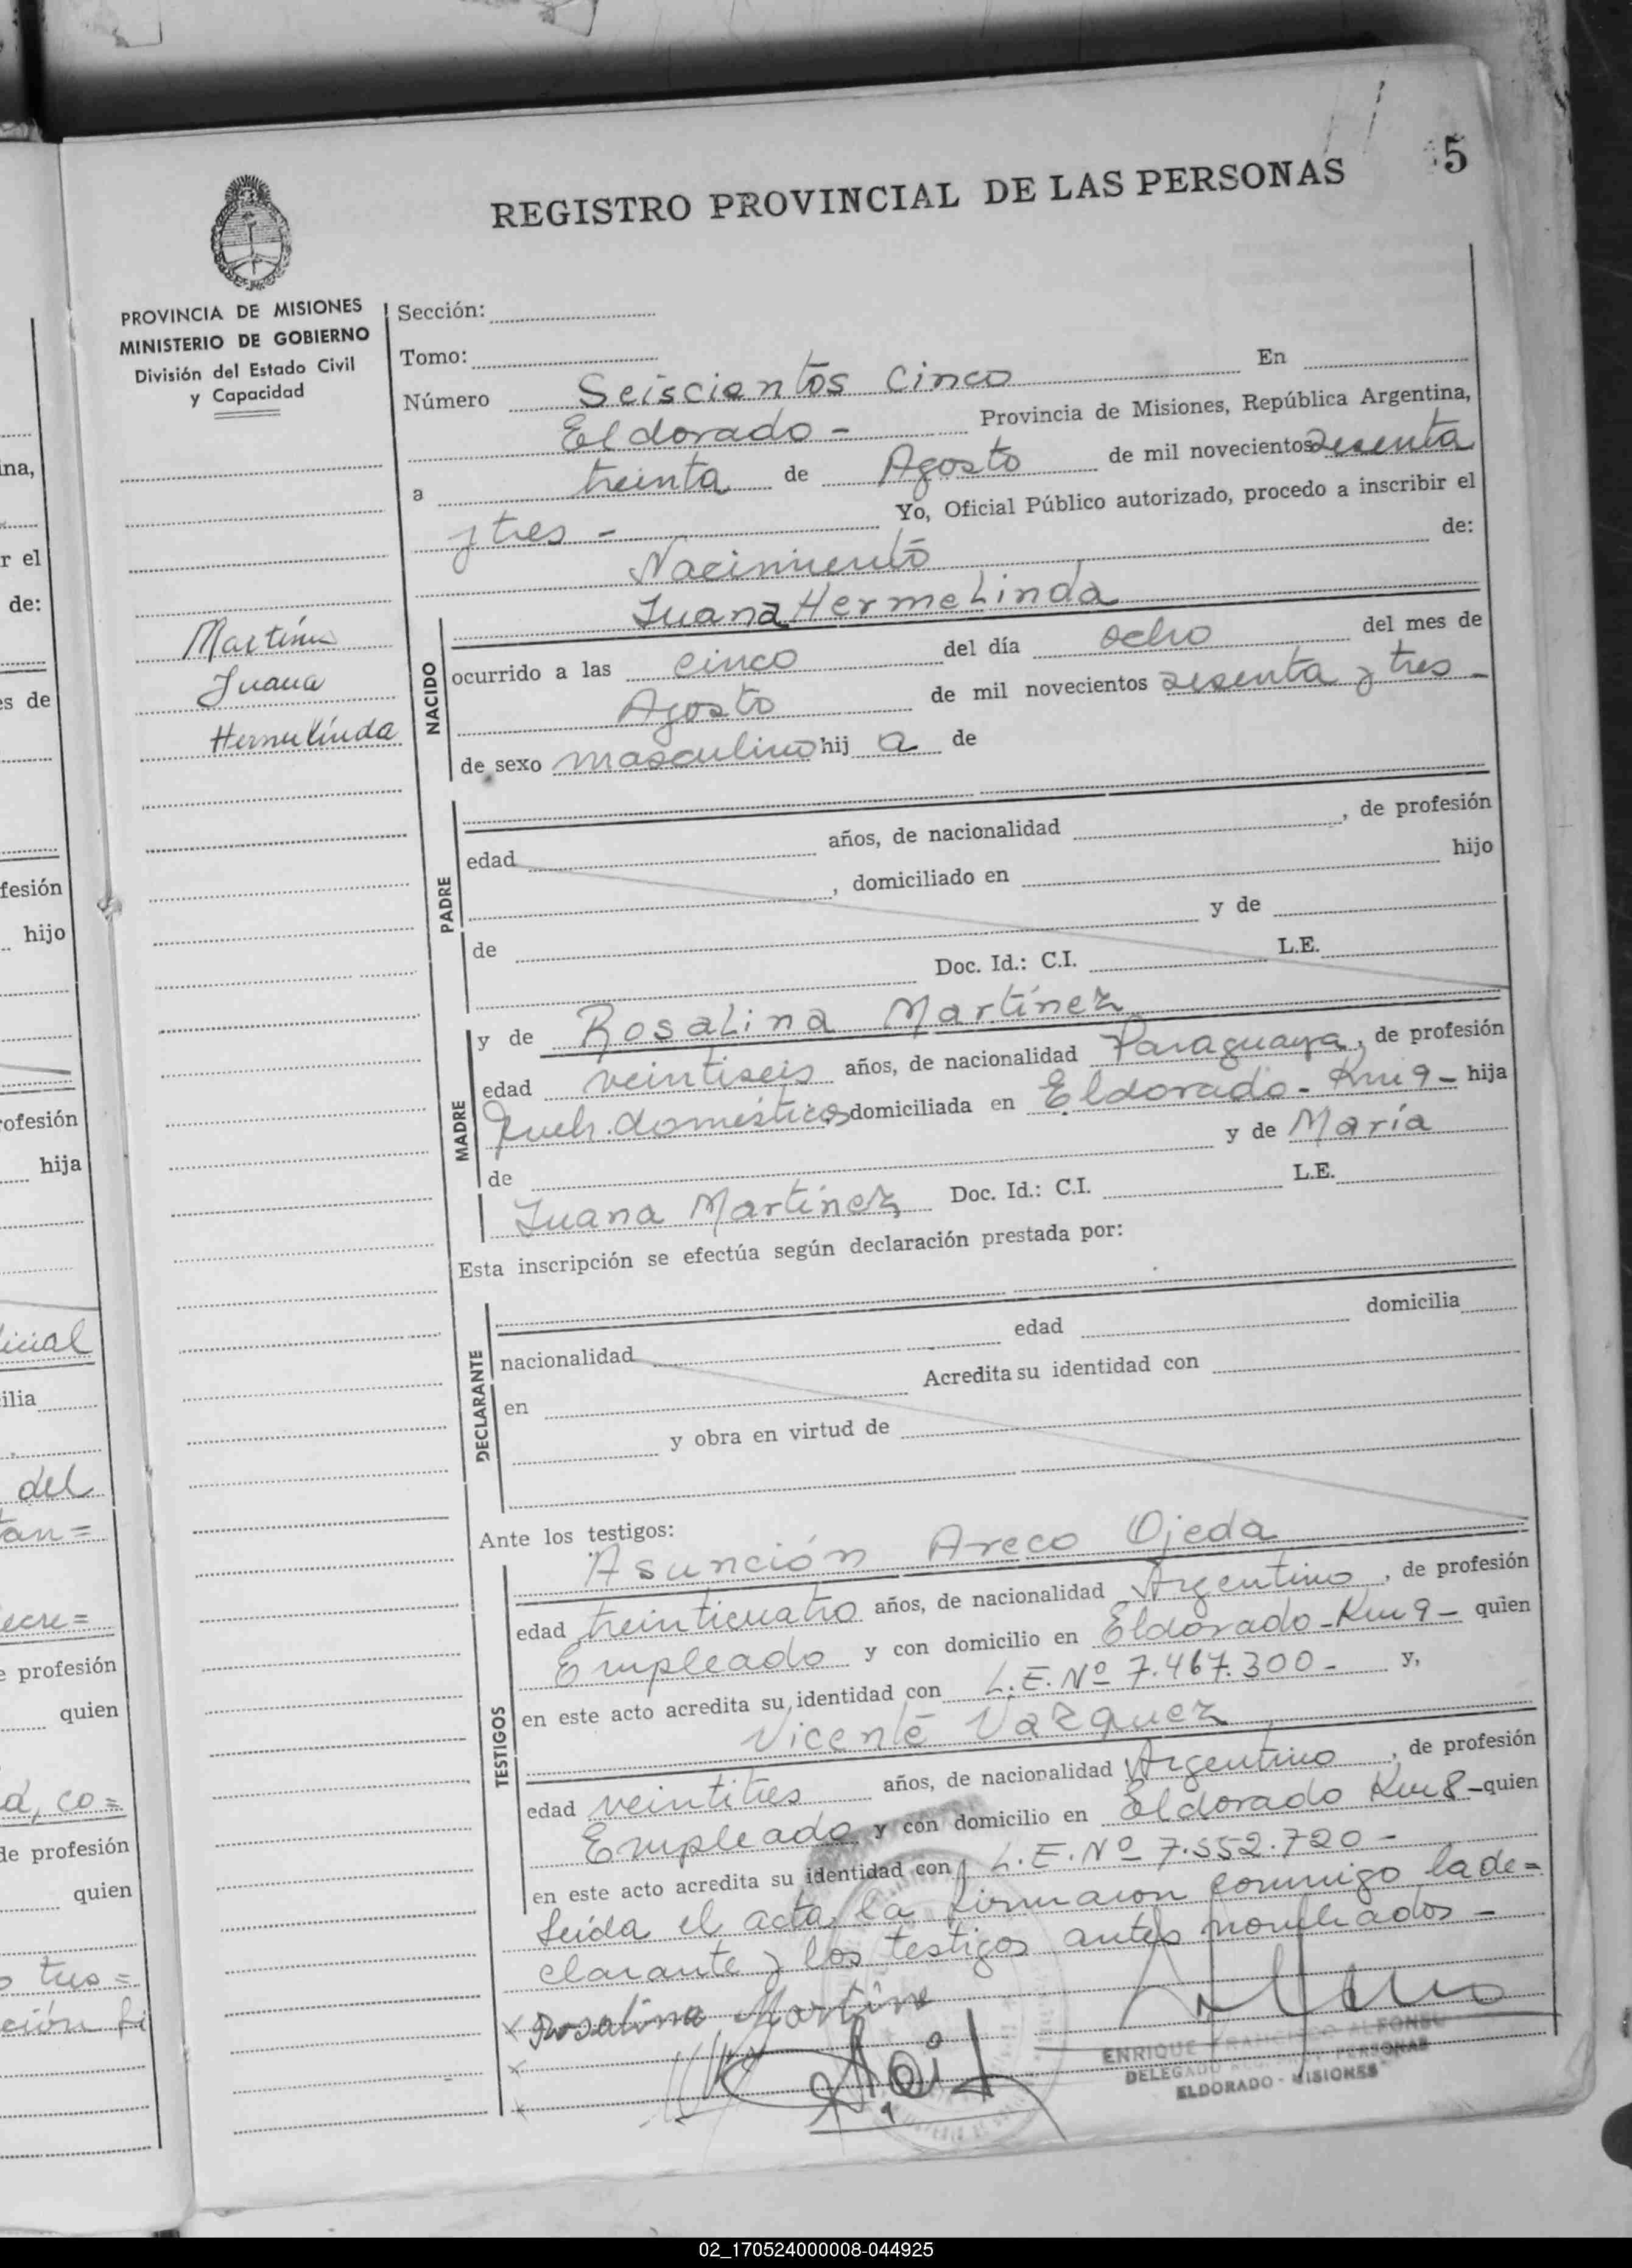 5
REGISTRO PROVINCIAL DE LAS PERSONAS
PROVINCIA DE MISIONES
MINISTERIO DE GOBIERNO
División del Estado Civil
y Capacidad
Martínez
Juana
Hermelinda
Sección:
Tomo:
Número Seiscientos Cinco En
Eldorado - Provincia de Misiones, República Argentina,
a treinta de Agosto de mil novecientos sesenta
y tres - Yo, Oficial Público autorizado, procedo a inscribir el
Nacimiento de:
Juana Hermelinda
NACIDO
ocurrido a las cinco del día ocho del mes de
Agosto de mil novecientos sesenta y tres -
de sexo masculino hij a de
PADRE
edad años, de nacionalidad , de profesión
, domiciliado en hijo
de y de
Doc. Id.: C.I. L.E.
MADRE
y de Rosalina Martínez
edad veintiseis años, de nacionalidad Paraguaya, de profesión
Queh. domésticos domiciliada en Eldorado - Km 9 - hija
de y de María
Juana Martínez Doc. Id.: C.I. L.E.
Esta inscripción se efectúa según declaración prestada por:
DECLARANTE
nacionalidad edad domicilia
en Acredita su identidad con
y obra en virtud de
Ante los testigos:
TESTIGOS
Asunción Areco Ojeda
edad treinticuatro años, de nacionalidad Argentino, de profesión
Empleado y con domicilio en Eldorado - Km 9 - quien
en este acto acredita su identidad con L.E. Nº 7.467.300 - y,
Vicente Vazquez
edad veintitres años, de nacionalidad Argentino, de profesión
Empleado y con domicilio en Eldorado Km 8 - quien
en este acto acredita su identidad con L.E. Nº 7.552.720 -
Leída el acta, la firmaron conmigo la de=
clarante y los testigos antes nombrados -
x Rosalina Martine
x
x
ENRIQUE FRANCISCO ALFONSO
DELEGADO REG. PROV. PERSONAS
ELDORADO - MISIONES
ina,
r el
de:
es de
fesión
hijo
ofesión
hija
icial
cilia
del
tan=
ecre=
e profesión
quien
a, co=
de profesión
quien
o tres=
ción
02_170524000008-044925